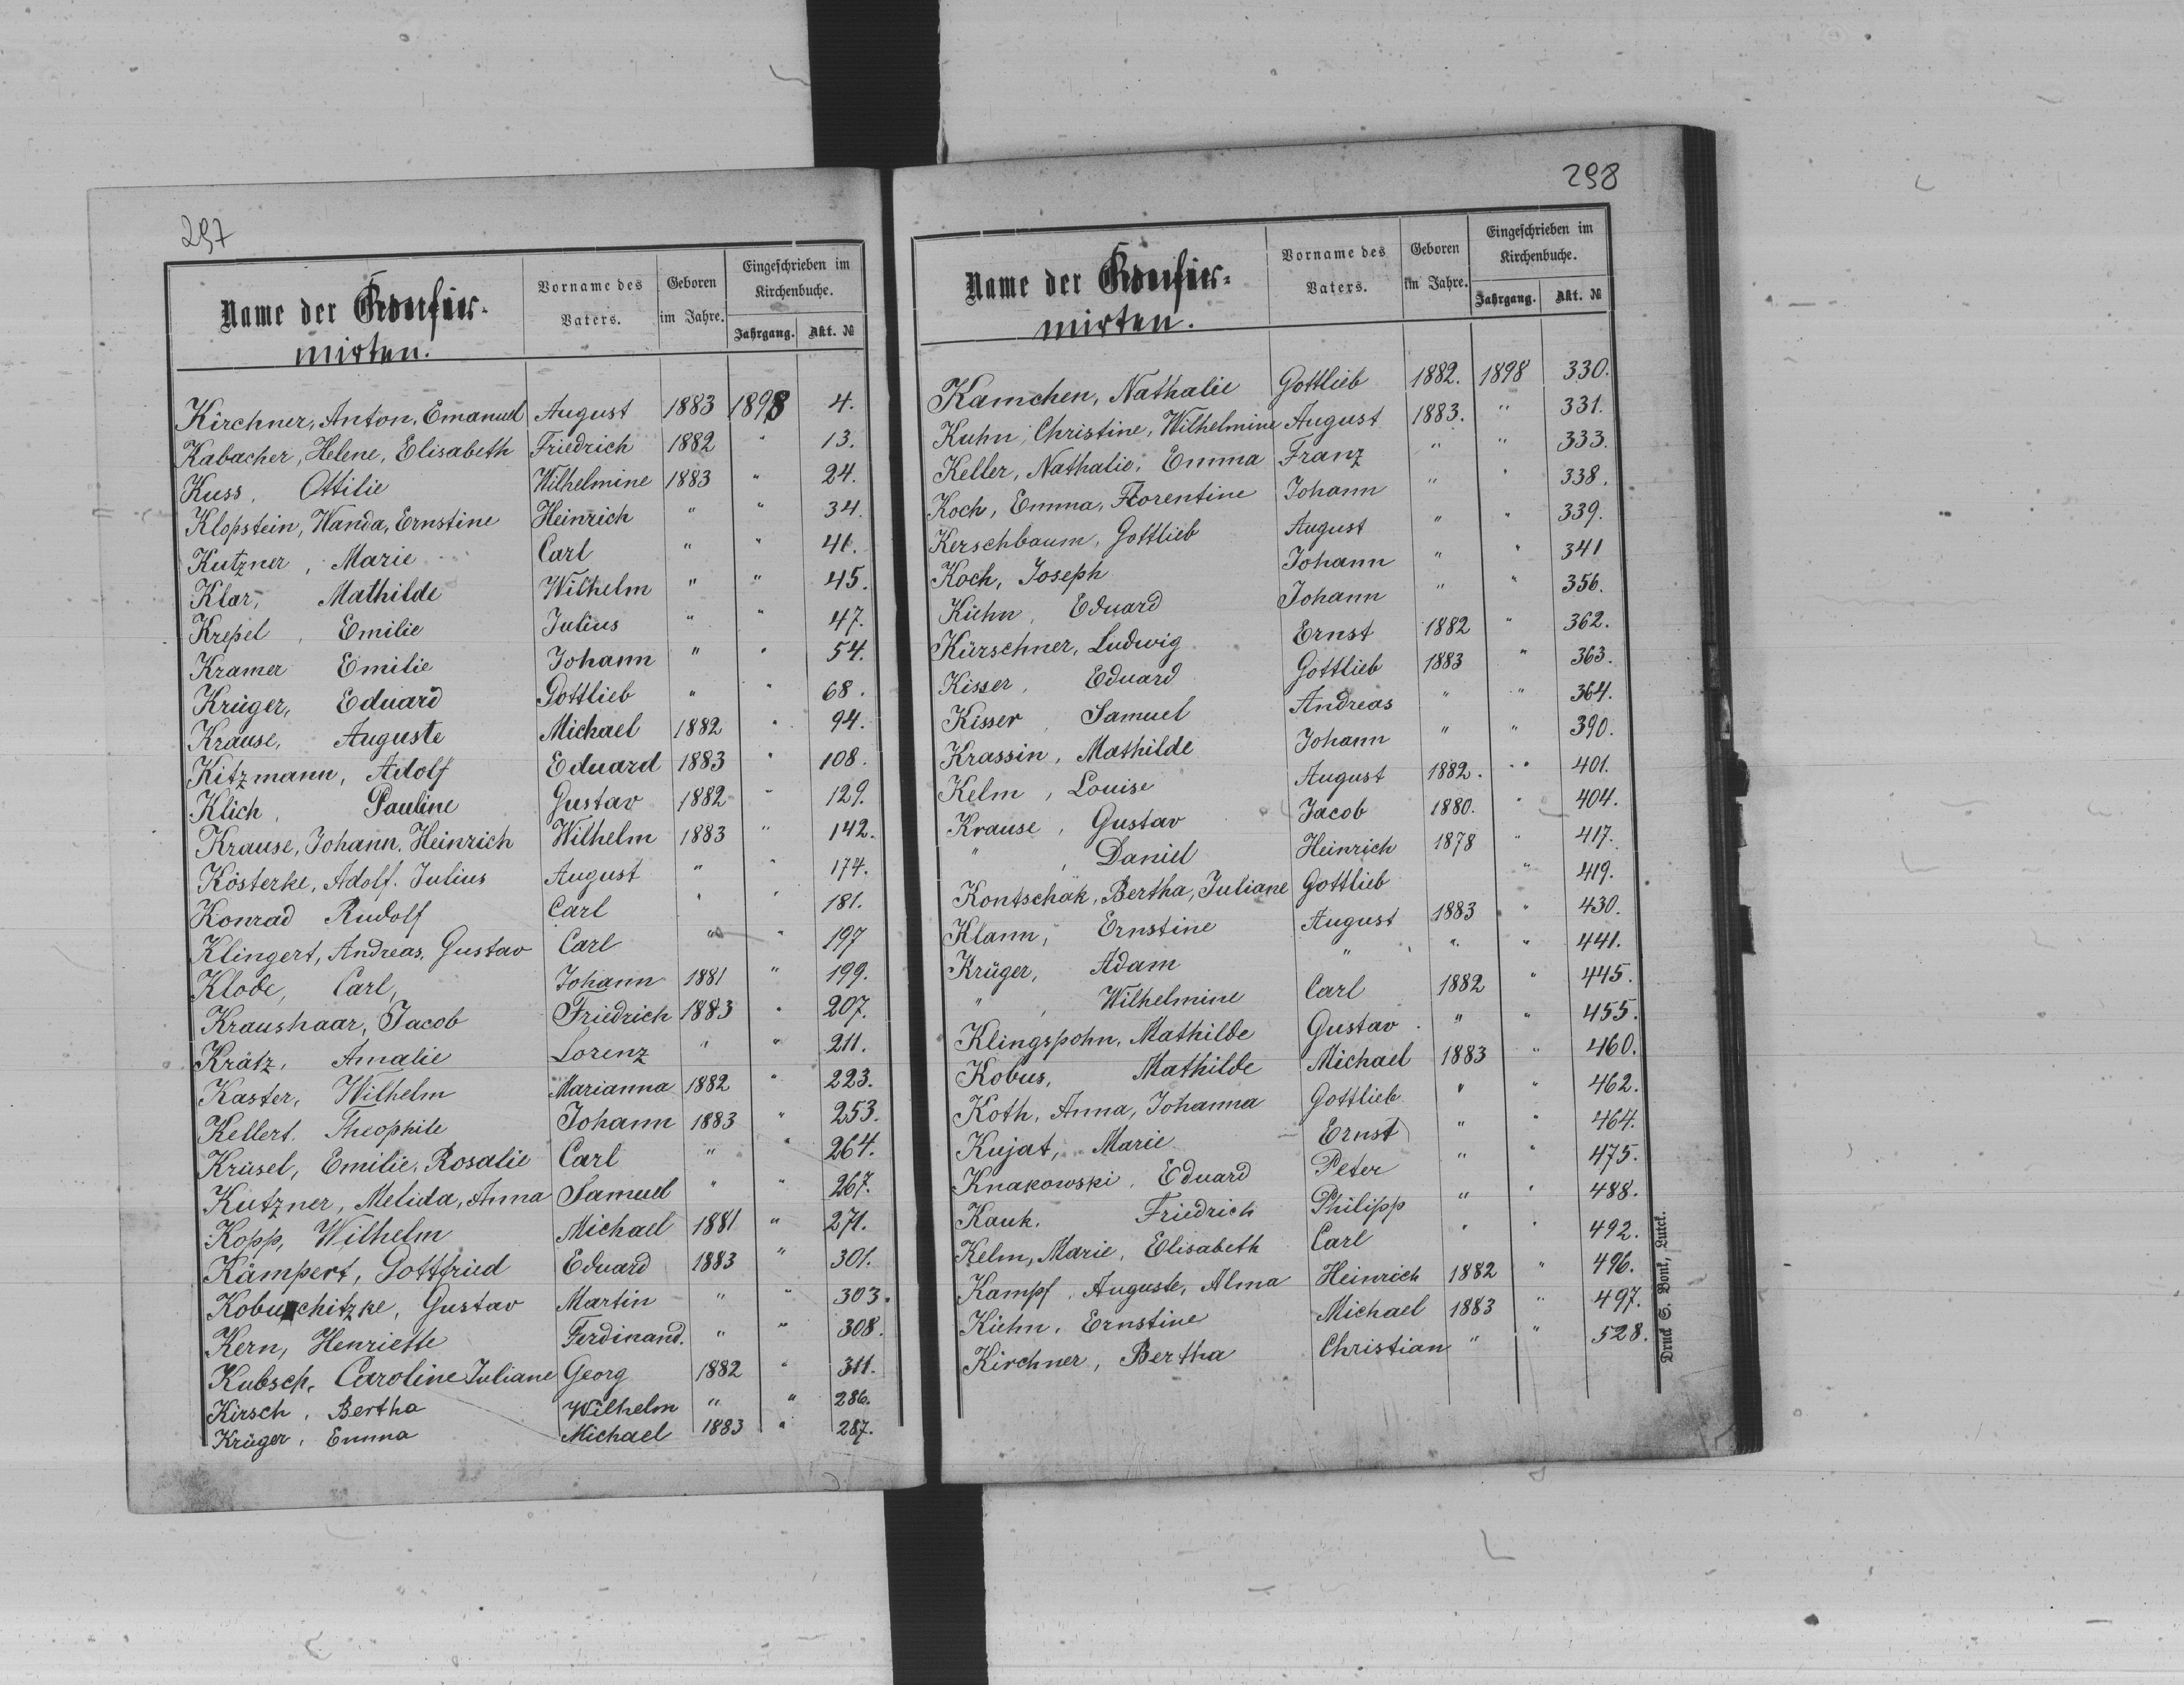 297
Name der Konfir-
mirten.
Vorname des
Vaters.
Geboren
im Jahre.
Eingeschrieben im
Kirchenbuche.
Jahrgang. Akt. №
Kirchner, Anton, Emanuel August 1883 1898 4.
Kabacher, Helene, Elisabeth Friedrich 1882 " 13.
Kuss, Ottilie Wilhelmine 1883 " 24.
Klopstein, Wanda, Ernstine Heinrich " " 34.
Kutzner, Marie Carl " " 41.
Klar, Mathilde Wilhelm " " 45.
Krepel, Emilie Julius " " 47.
Kramer Emilie Johann " " 54.
Krüger, Eduard Gottlieb " " 68.
Krause, Auguste Michael 1882 " 94.
Kitzmann, Adolf Eduard 1883 " 108.
Klich, Pauline Gustav 1882 " 129.
Krause, Johann, Heinrich Wilhelm 1883 " 142.
Kösterke, Adolf. Julius August " " 174.
Konrad Rudolf Carl " " 181.
Klingert, Andreas, Gustav Carl " " 197
Klode, Carl, Johann 1881 " 199.
Kraushaar, Jacob Friedrich 1883 " 207.
Krätz, Amalie Lorenz " " 211.
Kaster, Wilhelm Marianna 1882 " 223.
Kellert. Theophile Johann 1883 " 253.
Krüsel, Emilie, Rosalie Carl " " 264.
Kutzner, Melida, Anna Samuel " " 267.
Kopp, Wilhelm Michael 1881 " 271.
Kämpert, Gottfried Eduard 1883 " 301.
Kobuschitzke, Gustav Martin " " 303.
Kern, Henriette Ferdinand. " " 308.
Kubsch, Caroline Juliane Georg 1882 " 311.
Kirsch, Bertha Wilhelm " " 286.
Krüger, Emma Michael 1883 " 287.
298
Name der Konfir-
mirten.
Vorname des
Vaters.
Geboren
im Jahre.
Eingeschrieben im
Kirchenbuche.
Jahrgang. Akt. №
Kamchen, Nathalie Gottlieb 1882. 1898 330.
Kuhn, Christine, Wilhelmine August 1883. " 331.
Keller, Nathalie, Emma Franz " " 333.
Koch, Emma, Florentine Johann " " 338.
Kerschbaum, Gottlieb August " " 339.
Koch, Joseph Johann " " 341
Kühn, Eduard Johann " " 356.
Kürschner, Ludwig Ernst 1882 " 362.
Kisser, Eduard Gottlieb 1883 " 363.
Kisser, Samuel Andreas " " 364.
Krassin, Mathilde Johann " " 390.
Kelm, Louise August 1882. " 401.
Krause, Gustav Jacob 1880. " 404.
", Daniel Heinrich 1878 " 417.
Kontschak, Bertha, Juliane Gottlieb " 419.
Klann, Ernstine August 1883 " 430.
Krüger, Adam " " " 441.
", Wilhelmine Carl 1882 " 445.
Klingspohn, Mathilde Gustav " " 455.
Kobus, Mathilde Michael 1883 " 460.
Koth, Anna, Johanna Gottlieb " " 462.
Kujat, Marie Ernst " " 464.
Knakowski, Eduard Peter " " 475.
Kauk. Friedrich Philipp " " 488.
Kelm, Marie, Elisabeth Carl " " 492.
Kampf, Auguste, Alma Heinrich 1882 " 496.
Kiehn, Ernstine Michael 1883 " 497.
Kirchner, Bertha Christian " " 528.
Druck S. Bonk, Lutck.